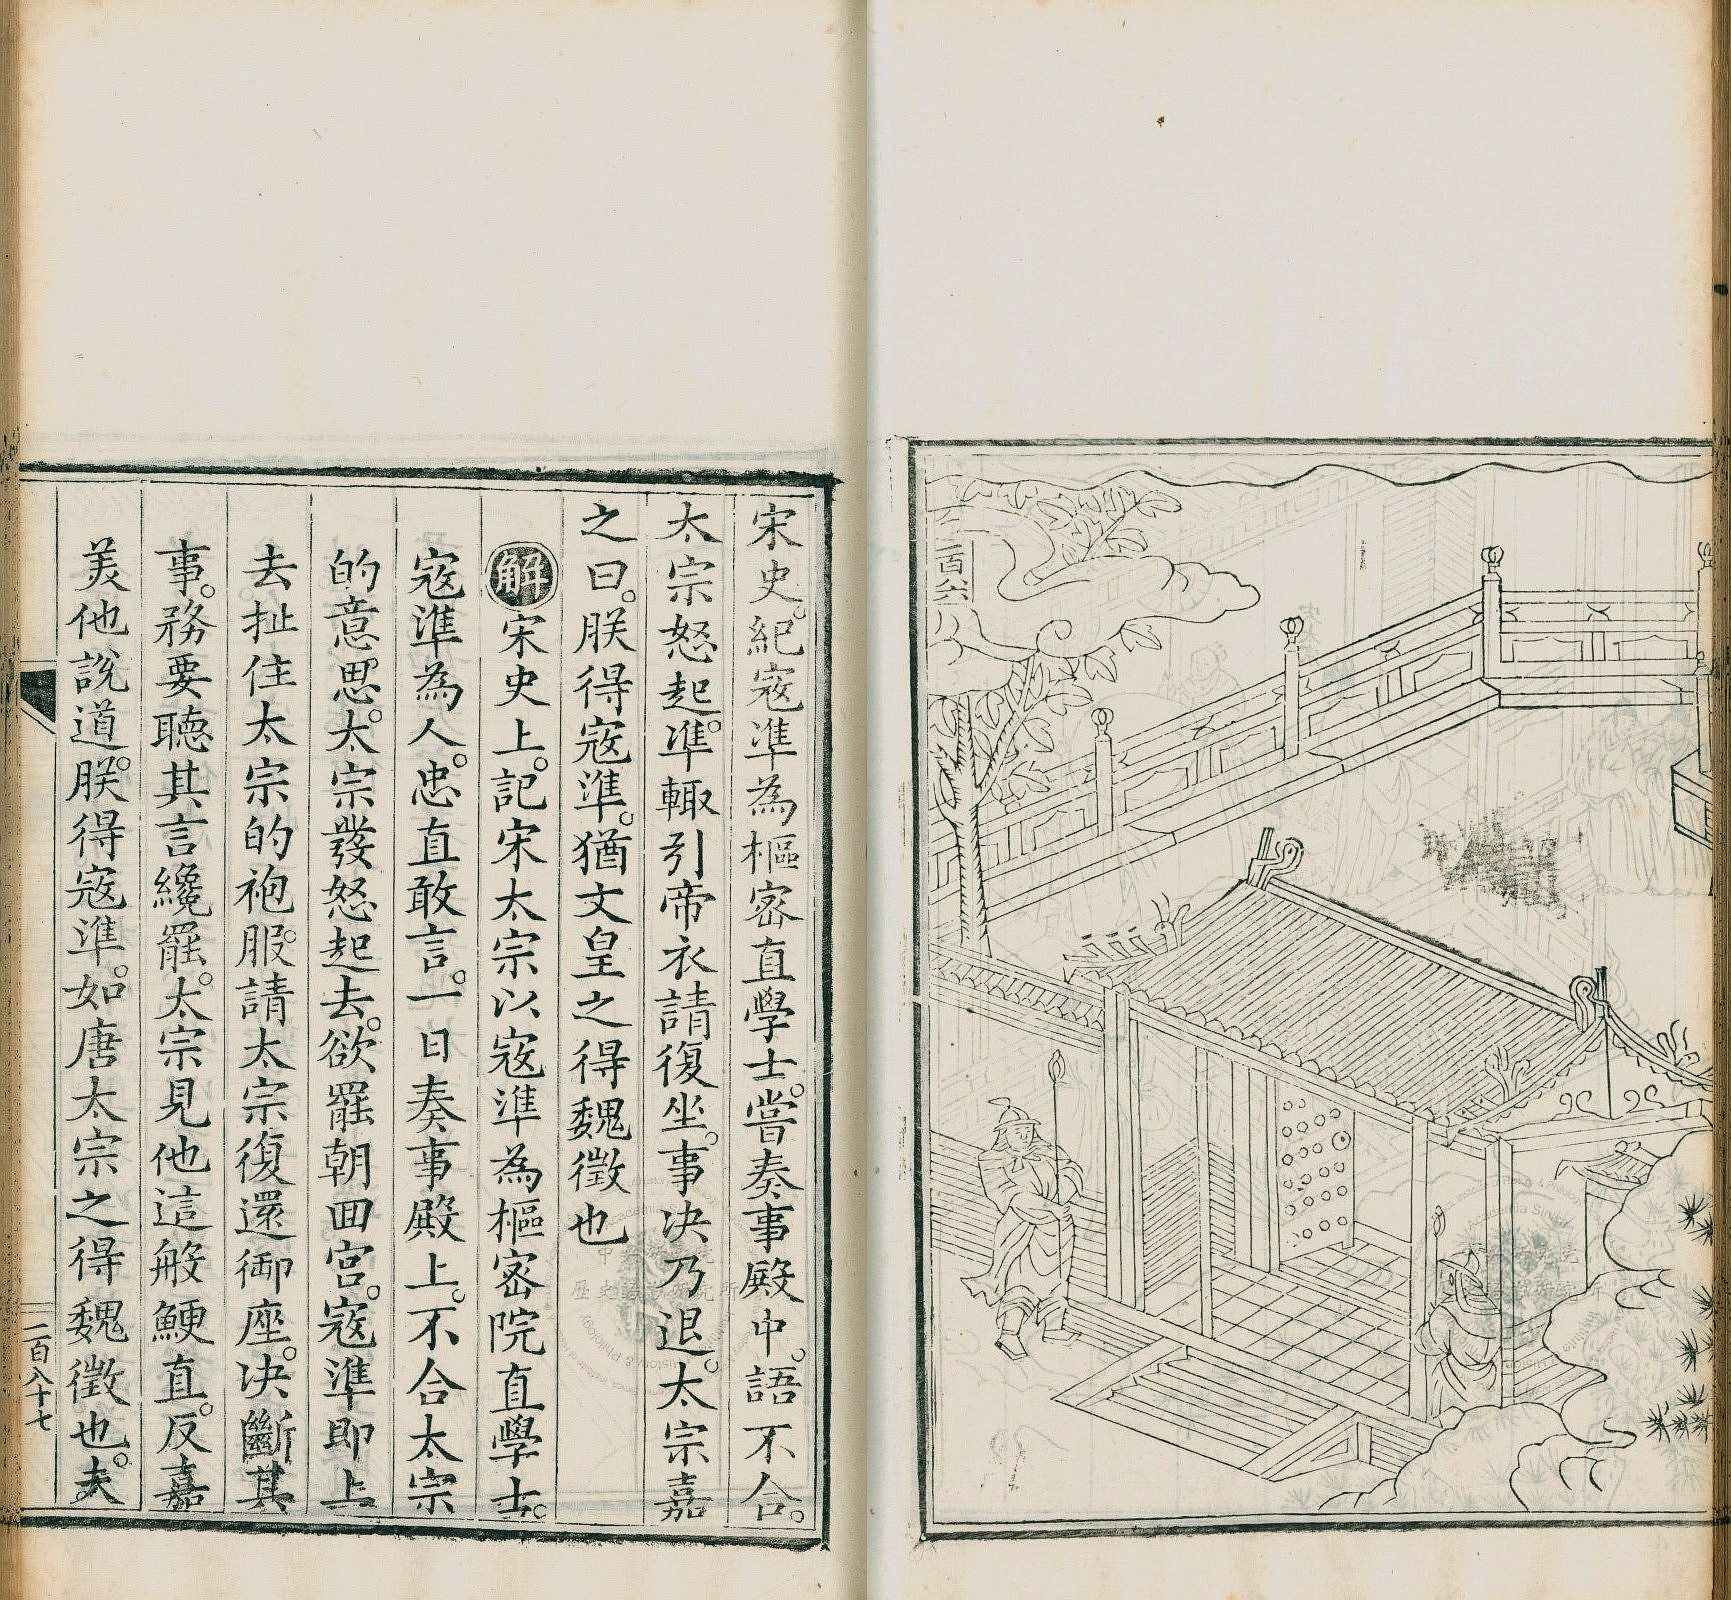 宋史。紀寇準為樞密直學士。嘗奏事殿中。語不合。
太宗怒起。準輙引帝衣請復坐。事決乃退。太宗嘉
之曰。朕得寇準。猶文皇之得魏徵也
解宋史上。記宋太宗以寇準為樞密院直學士。
寇準為人。忠直敢言。一日奏事殿上。不合太宗
的意思。太宗發怒起去。欲罷朝回宮。寇準即上
去扯住太宗的袍服。請太宗復還御座。決斷其
事。務要聽其言纔罷。太宗見他這般鯁直。反嘉
美他說道。朕得寇準。如唐太宗之得魏徵也。夫
二百八十七